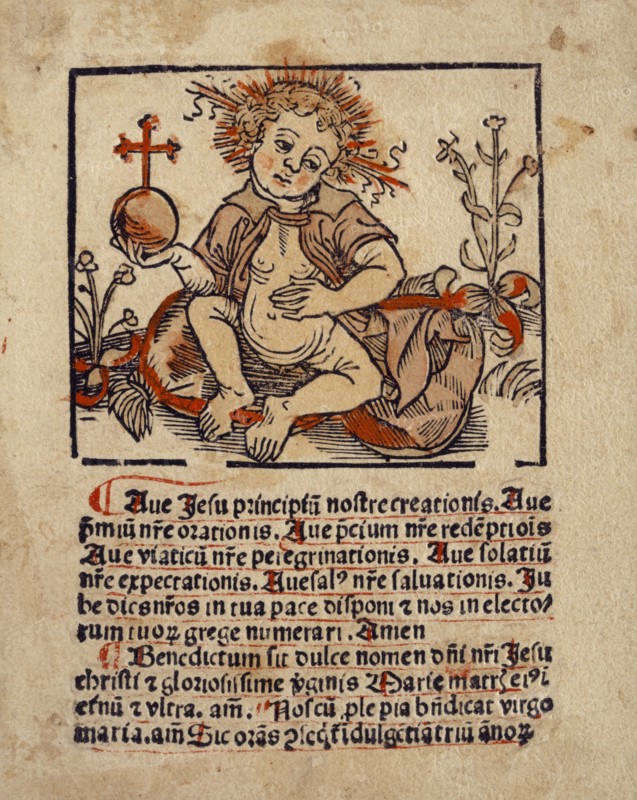 Aue Jesu principiū nostre creationis. Aue
p̄miū nr̄e orationis. Aue p̄cium nr̄e redēptiōis
Aue viaticū nr̄e peregrinationis. Aue solatiū
nr̄e expectationis. Aue salꝰ nr̄e saluationis. Ju
be dies nr̄os in tua pace disponi ⁊ nos in electo/
rum tuoꝝ grege numerari. Amen
Benedictum sit dulce nomen dn̄i nr̄i Jesu
christi ⁊ gloriosissime v̄ginis Marie
et vltra. am̄. Nos cū ple pia bn̄dicat virgo
maria. am̄ Sic orās annoꝝ